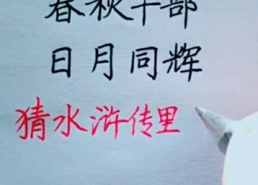 春秋半部
日月同辉
猜水浒传里